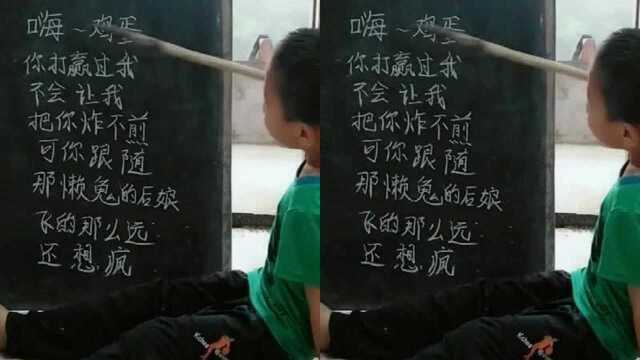 嗨~鸡蛋
你打赢过我
不会让我
把你炸不煎
可你跟随
那懒兔的后娘
飞的那么远
还想疯
嗨~鸡蛋
你打赢过我
不会让我
把你炸不煎
可你跟随
那懒兔的后娘
飞的那么远
还想疯